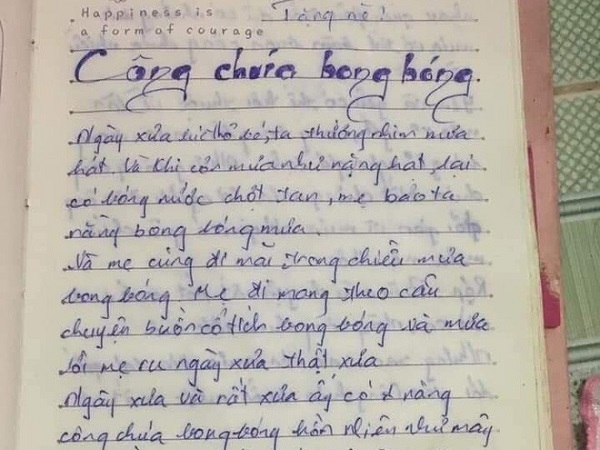 Happiness is
a form of courage
Tặng nè!
Công chúa bong bóng
Ngày xưa lúc thơ bé, ta thường nhìn mưa
hát và khi cơn mưa như nặng hạt, lại
có bóng nước chợt tan, mẹ bảo ta
rằng bong bóng mưa.
Và mẹ cũng đi mãi trong chiều mưa
bong bóng. Mẹ đi mang theo câu
chuyện buồn cổ tích bong bóng và mưa
lời mẹ ru ngày xưa thật xưa
Ngày xưa và rất xưa ấy có nàng
công chúa bong bóng hồn nhiên như mây